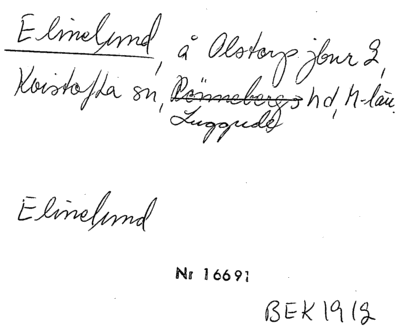 Elinelund, å Olstorp jbnr 2,
Kvistofta sn, Rönnebergs hd, M-län.
Luggude
Elinelund
Nr 16691
BEK 1912